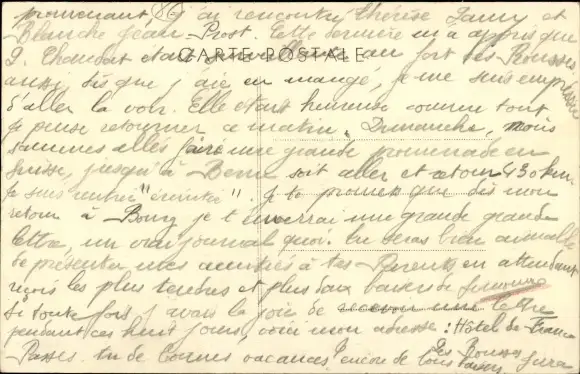 promenant (86) j'ai rencontré Thérèse Jamy et
Blanche Jean-Prost. Cette dernière m'a appris que
J. Chambat était au fort des Rousses
CARTE POSTALE
aussi dès que j'aie eu mangé, je me suis empressée
d'aller la voir. Elle était heureuse comme tout
Je pense retourner ce matin. Dimanche, nous
sommes allés faire une grande promenade en
Suisse, jusqu'à Berne soit aller et retour 430 km.
Je suis rentrée "éreintée". Je te promets que dès mon
retour à Bourg je t'enverrai une grande grande
lettre, un vrai journal quoi. Tu seras bien aimable
de présenter mes amitiés à tes Parents en attendant
reçois les plus tendres et plus doux baisers de Simone
Si toute fois j'avais la joie de recevoir une lettre
pendant ces huit jours, voici mon adresse : Hôtel de France
Les Rousses Jura
Passes-tu de bonnes vacances ? encore de bons baisers